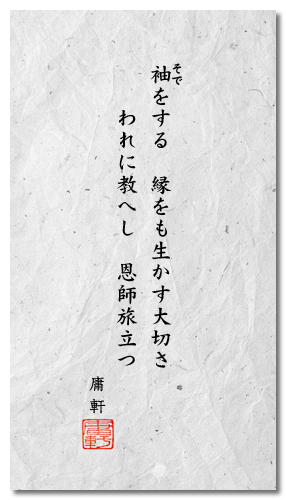 袖をする　縁をも生かす大切さ
そで
われに教へし　恩師旅立つ
庸軒
庸軒